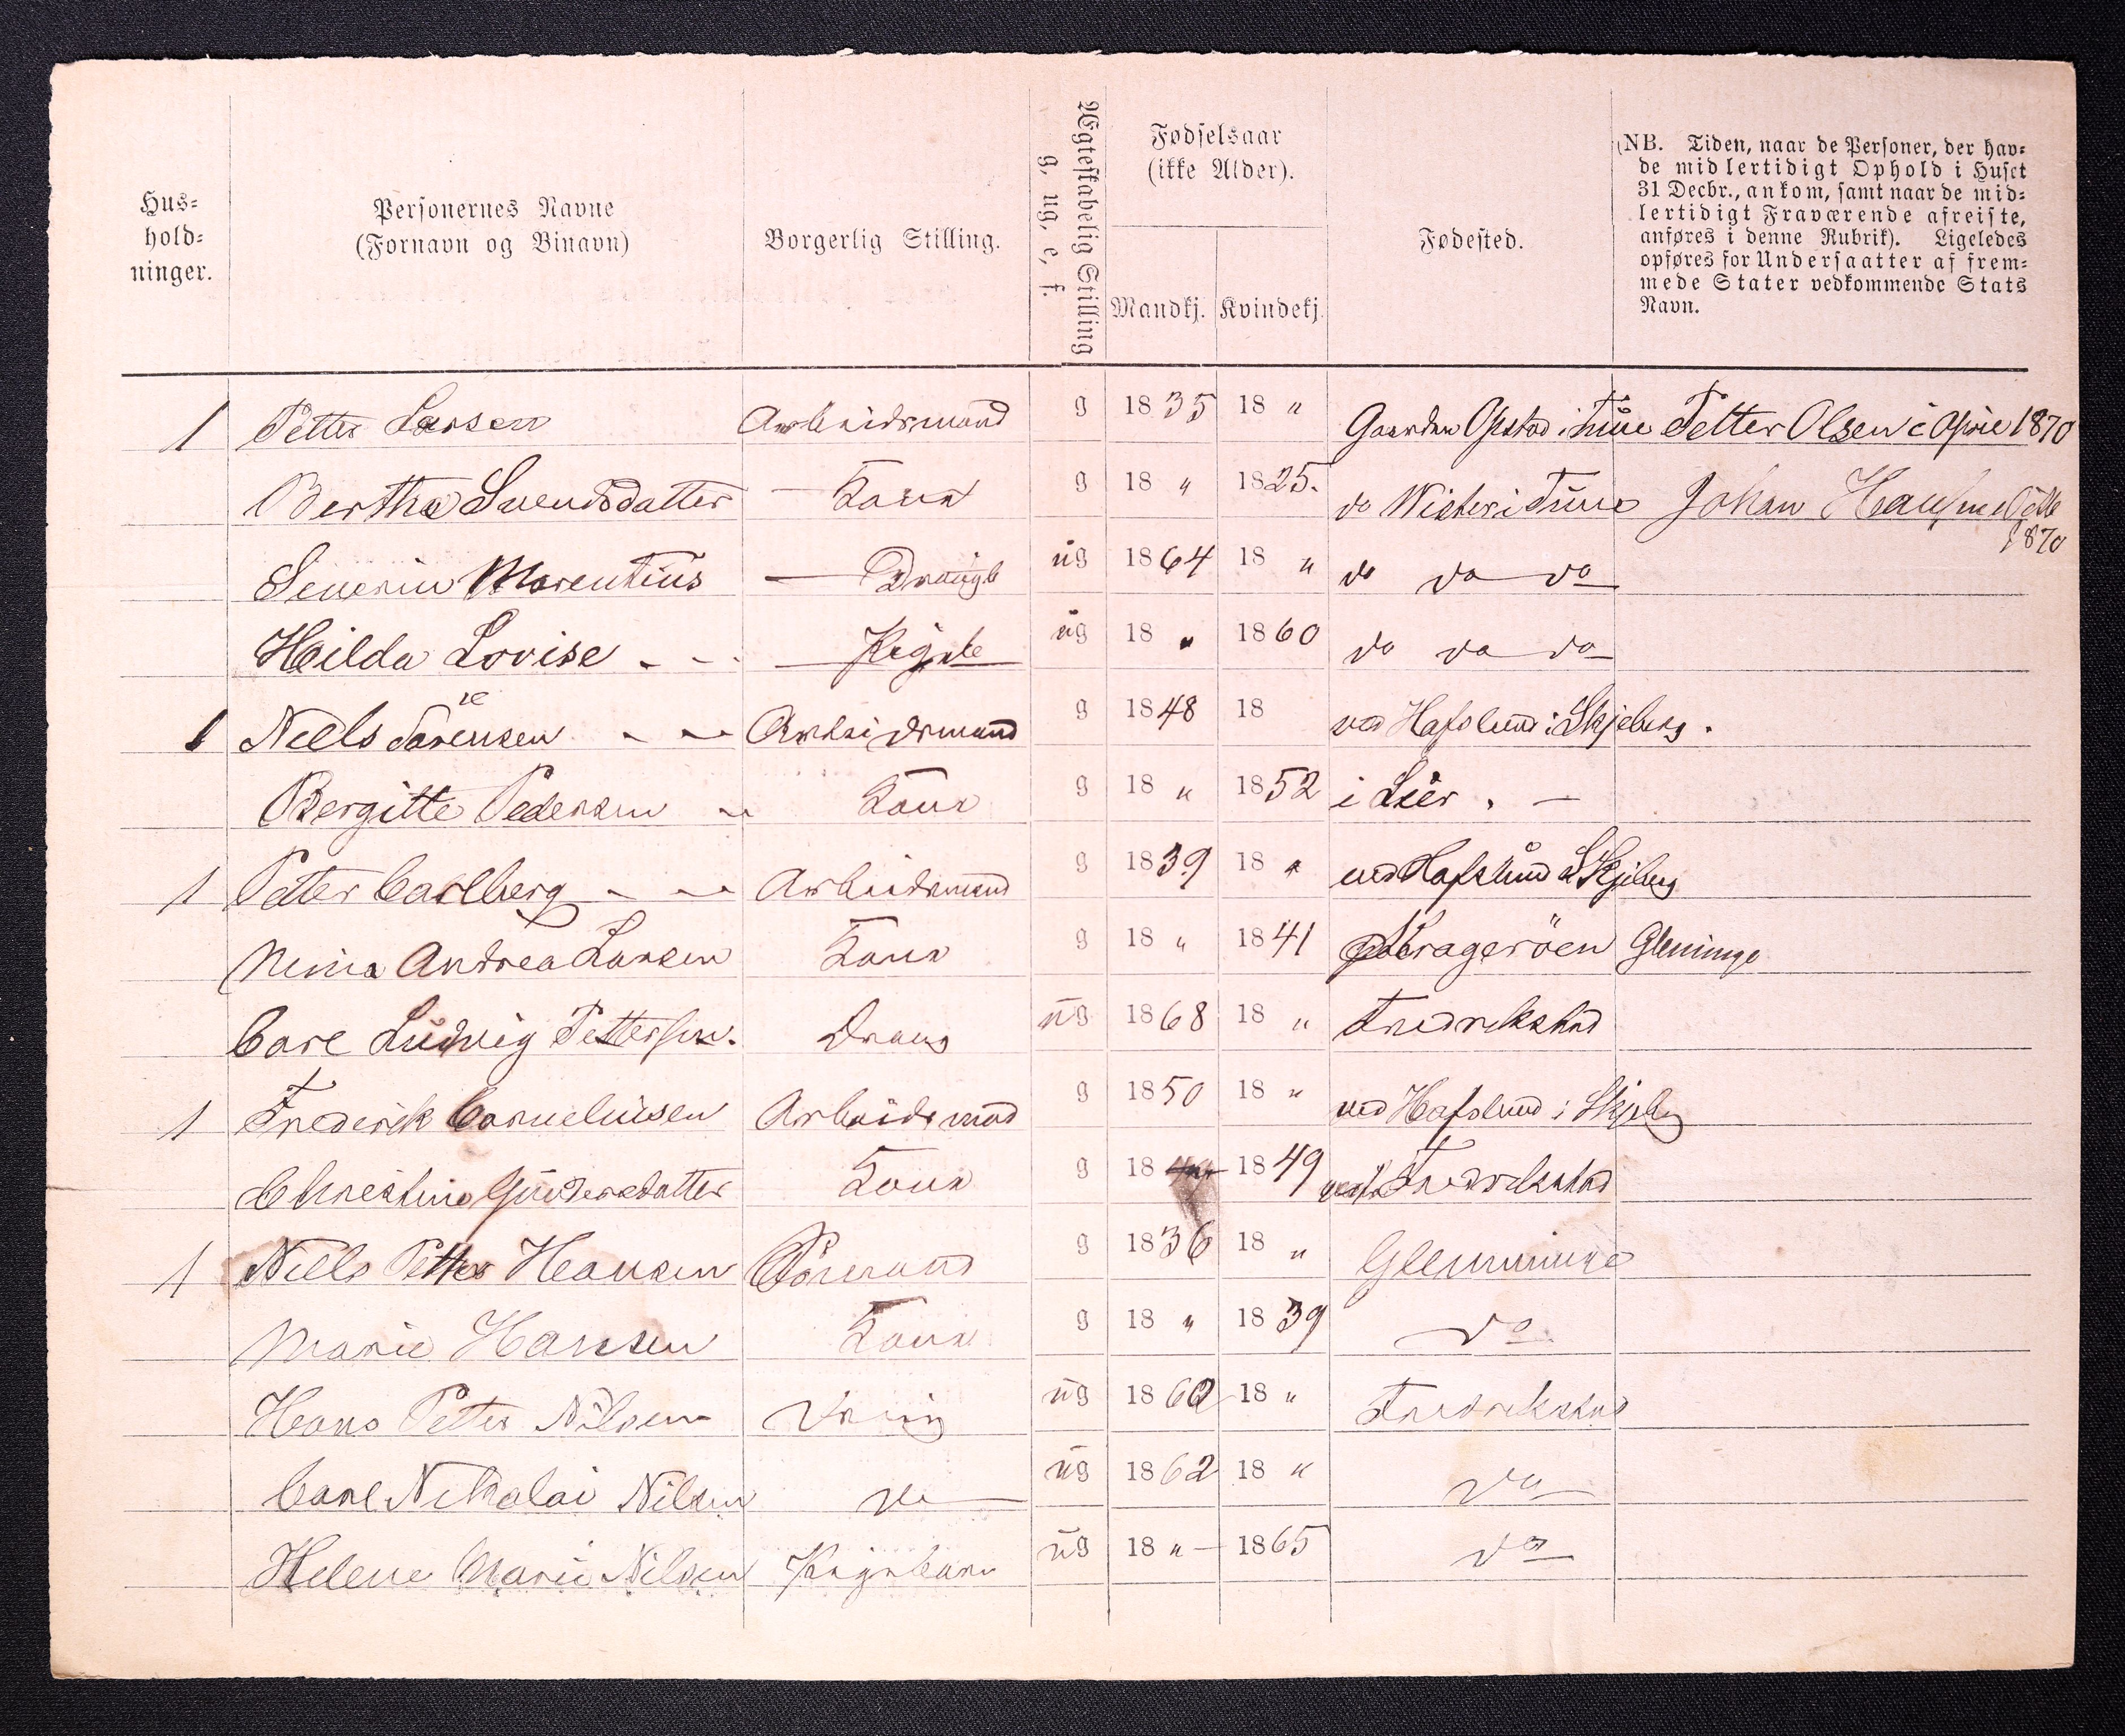 Hus-
hold-
ninger.
Personernes Navne
(Fornavn og Binavn)
Borgerlig Stilling.
Ægteskabelig Stilling
g, ug, e, f.
Fødselsaar
(ikke Alder).
Mandkj. Kvindekj.
Fødested.
(NB. Tiden, naar de Personer, der hav-
de midlertidigt Ophold i Huset
31 Decbr., ankom, samt naar de mid-
lertidigt Fraværende afreiste,
anføres i denne Rubrik). Ligeledes
opføres for Undersaatter af frem-
mede Stater vedkommende Stats
Navn.
1 Petter Larsen Arbeidsmand g 1835 18 " Gaarden Opstad i Tune Petter Olsen i April 1870
Bertha Svendsdatter Kona g 18 " 1825. do Wister i Tune Johan
1870
Severin Marentius Dreng ug 1864 18 " do do do
Hilda Lovise Pige ug 18 " 1860 do do do
1 Niels Sørensen Arbeidsmand g 1848 18 ved Hafslund i Skjeberg.
Bergitte Pedersen Kona g 18 " 1852 i Lier.
1 Petter Carlberg Arbeidsmand g 1839 18 " ved Hafslund i Skjeberg
Mina Andrea Larsen Kona g 18 " 1841 Kragerøen Glemminge
Carl Ludvig Pettersen. Dreng ug 1868 18 " Fredrikstad
1 Frederik Corneliusen Arbeidsmand g 1850 18 " ved Hafslund i Skjeberg
Christine Gundersdatter Kona g 18 1849 Fredrikstad
1 Niels Petter Hansen g 1836 18 " Glemminge
Marie Hansen Kona g 18 " 1839 do
Hans Petter Nilsen Dreng ug 1860 18 " Fredrikstad
Carl Nikolai Nilsen do ug 1862 18 " do
Helene Marie Nilsen Pigebarn ug 18 " 1865 do